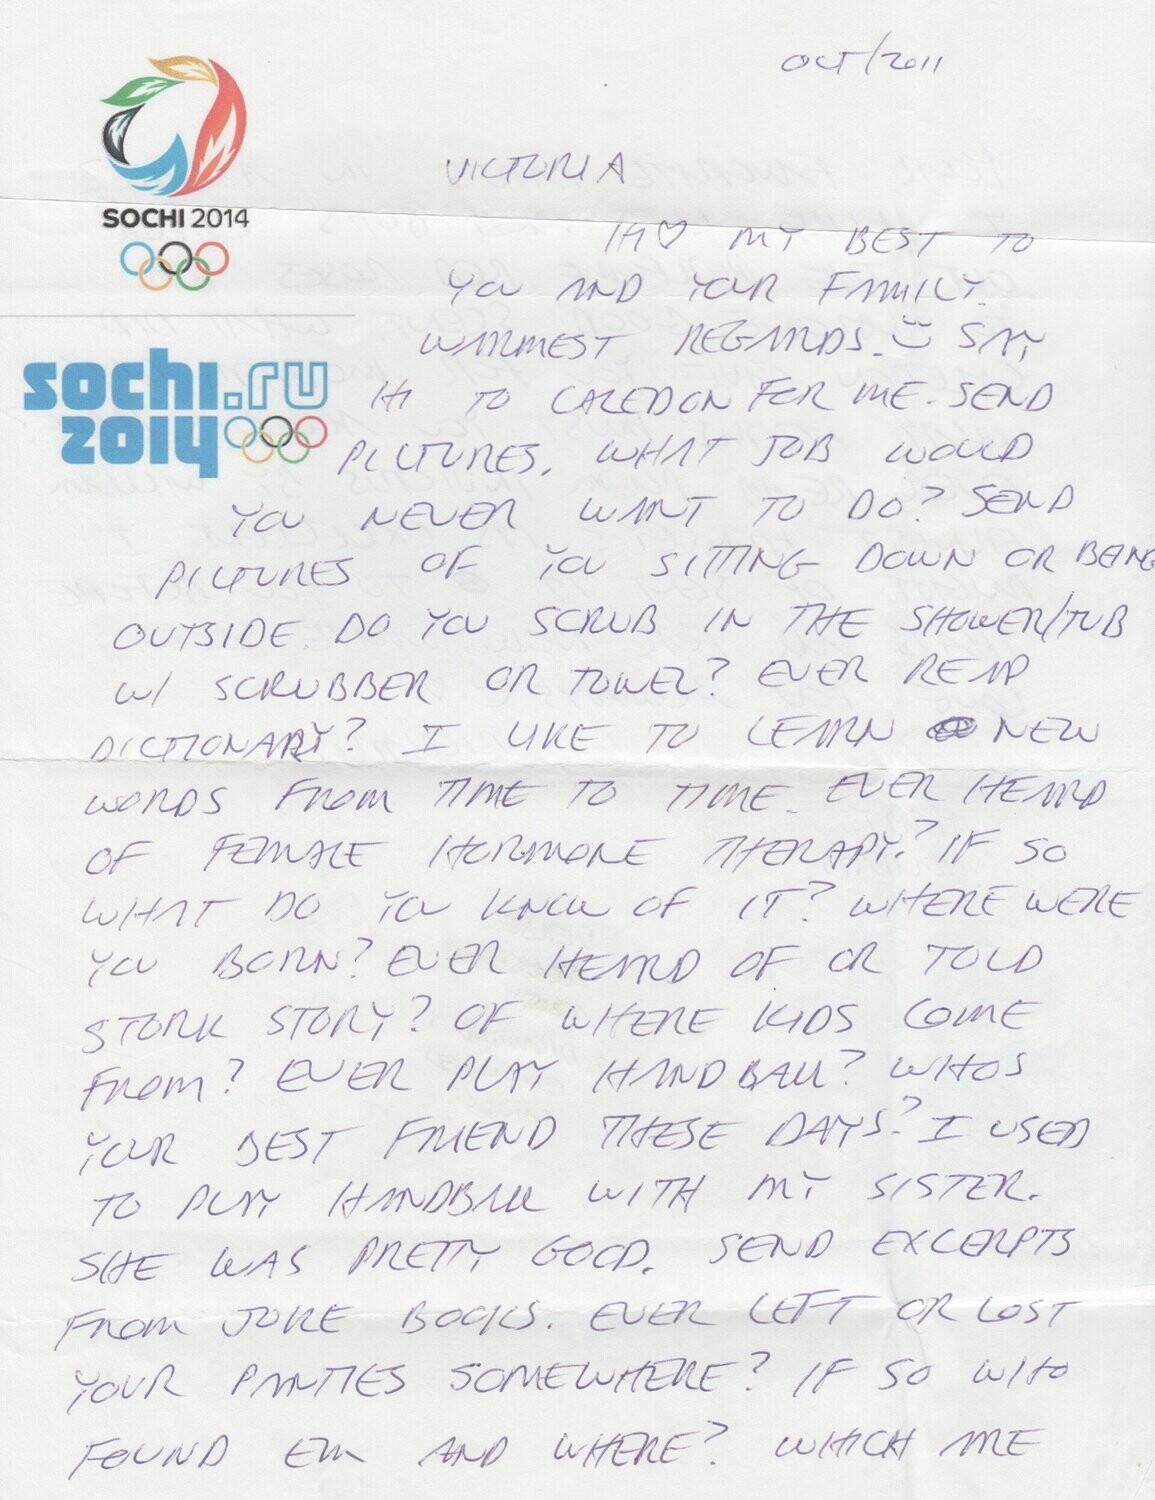 OCT/2011
SOCHI 2014
VICTORIA
HI♡ MY BEST TO
YOU AND YOUR FAMILY.
WARMEST REGARDS. SAY
sochi.ru
2014
HI TO CALEDON FOR ME. SEND
PICTURES. WHAT JOB WOULD
YOU NEVER WANT TO DO? SEND
PICTURES OF YOU SITTING DOWN OR BEING
OUTSIDE. DO YOU SCRUB IN THE SHOWER/TUB
W/ SCRUBBER OR TOWEL? EVER READ
DICTIONARY? I LIKE TO LEARN NEW
WORDS FROM TIME TO TIME. EVER HEARD
OF FEMALE HORMONE THERAPY? IF SO
WHAT DO YOU KNOW OF IT? WHERE WERE
YOU BORN? EVER HEARD OF OR TOLD
STORK STORY? OF WHERE KIDS COME
FROM? EVER PLAY HANDBALL? WHOS
YOUR BEST FRIEND THESE DAYS? I USED
TO PLAY HANDBALL WITH MY SISTER.
SHE WAS PRETTY GOOD. SEND EXCERPTS
FROM JOKE BOOKS. EVER LEFT OR LOST
YOUR PANTIES SOMEWHERE? IF SO WHO
FOUND EM AND WHERE? WHICH ARE